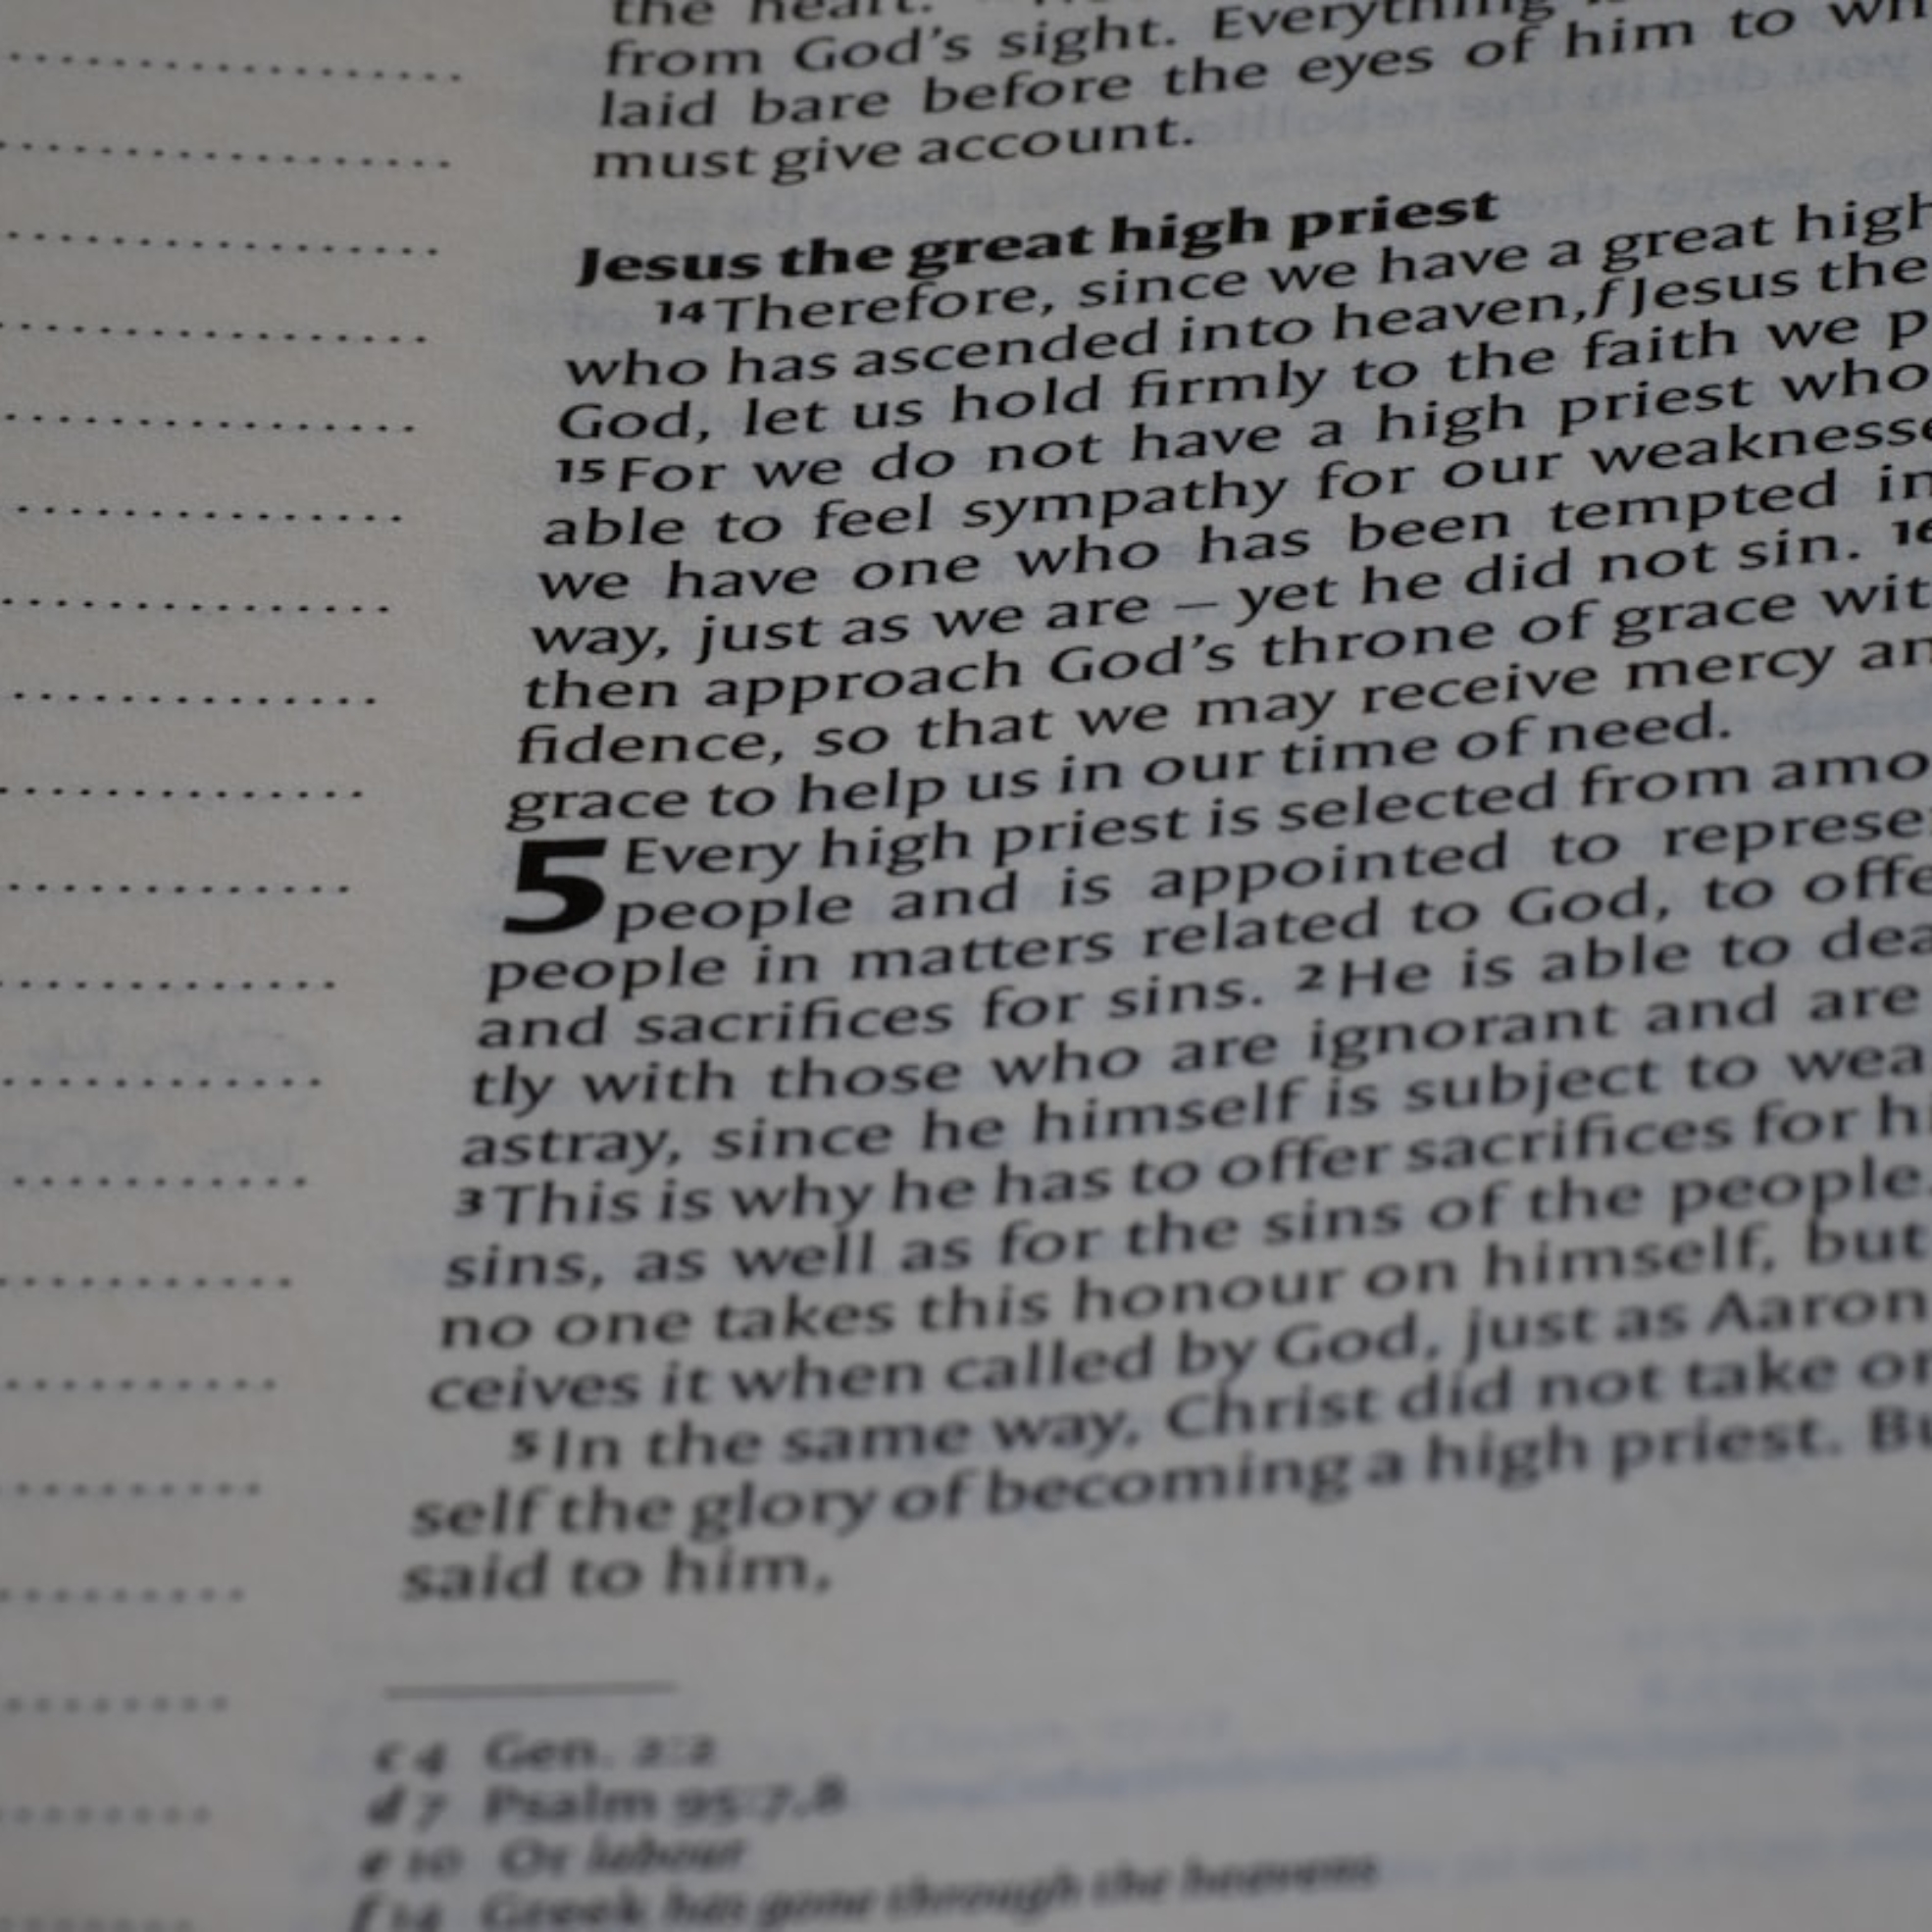 the heart.
from God's sight. Everything
laid bare before the eyes of him to
must give account.
Jesus the great high priest
14 Therefore, since we have a great high
who has ascended into heaven,f Jesus the
God, let us hold firmly to the faith we
15 For we do not have a high priest who
able to feel sympathy for our weaknesse
we have one who has been tempted in
way, just as we are – yet he did not sin.
then approach God's throne of grace wit
fidence, so that we may receive mercy an
grace to help us in our time of need.
5 Every high priest is selected from amo
people and is appointed to represe
people in matters related to God, to offe
and sacrifices for sins. 2 He is able to dea
tly with those who are ignorant and are
astray, since he himself is subject to wea
3 This is why he has to offer sacrifices for hi
sins, as well as for the sins of the people.
no one takes this honour on himself, but
ceives it when called by God, just as Aaron
5 In the same way, Christ did not take on
self the glory of becoming a high priest. Bu
said to him,
c 4 Gen. 2:2
d 7 Psalm 95:7,8
e 10 Or labour
f 14 Greek has gone through the heavens